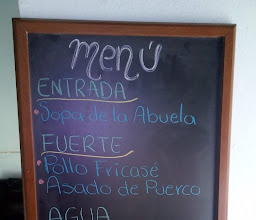 menú
ENTRADA
Sopa de la Abuela
FUERTE
Pollo Fricasé
Asado de Puerco
AGUA